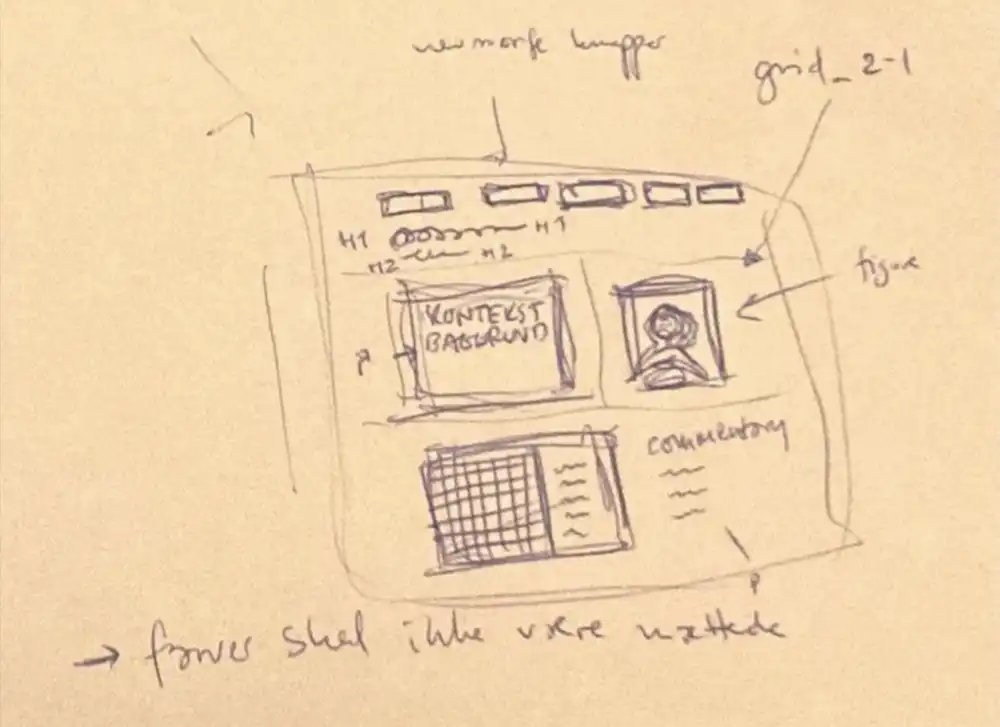 neumorfe knapper
grid_2-1
H1 H1
H2 H2
figure
KONTEKST
BAGGRUND
P
commentary
P
→ farver skal ikke være mættede